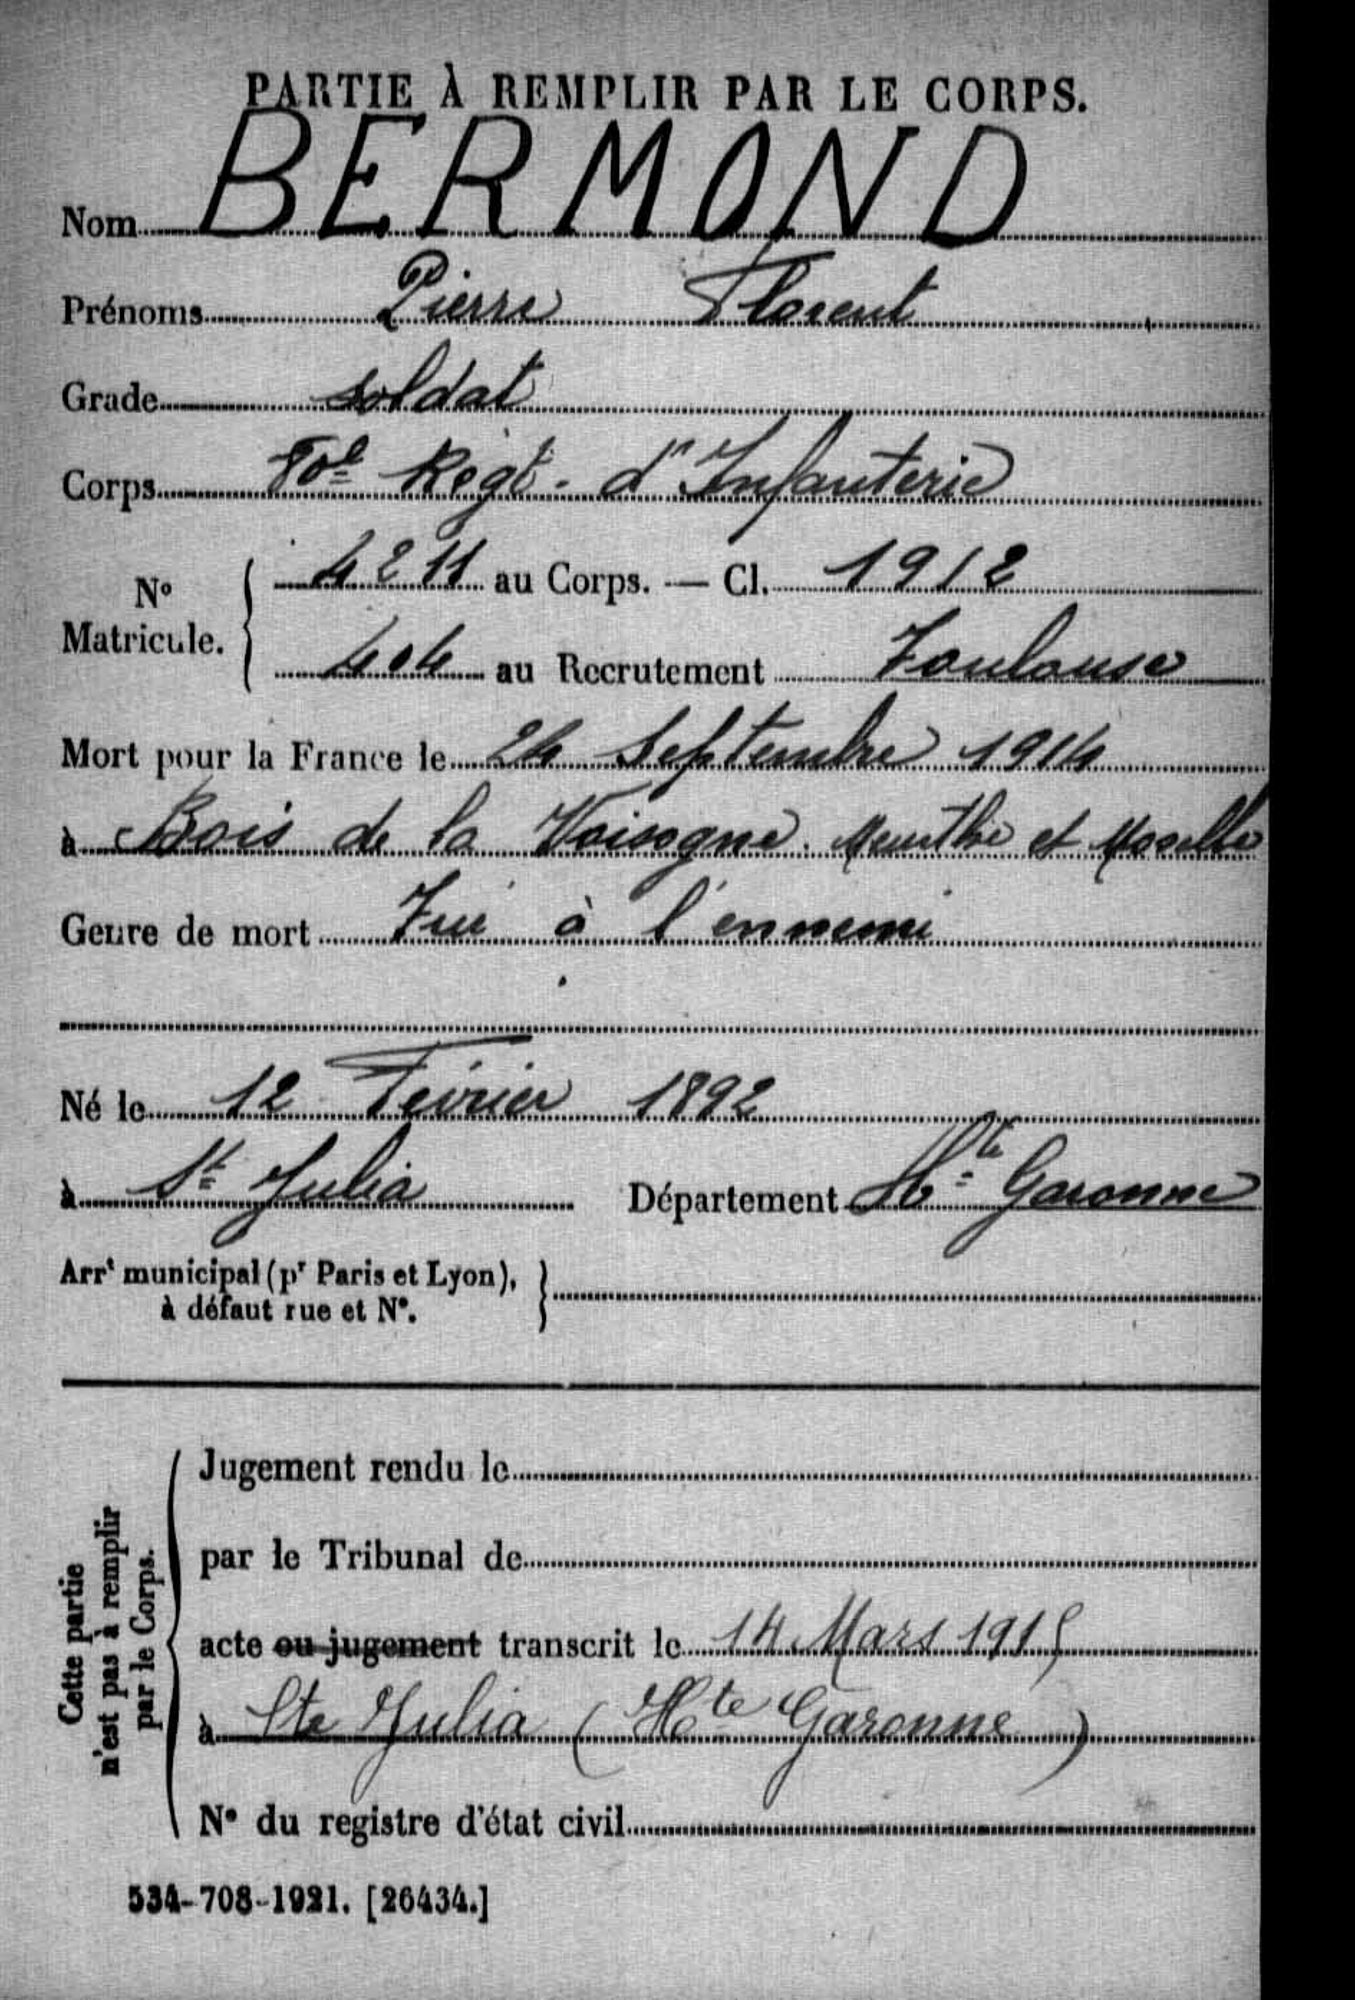 PARTIE À REMPLIR PAR LE CORPS.
Nom BERMOND
Prénoms Pierre Florent
Grade soldat
Corps 80e Régt. d'Infanterie
No Matricule. 4211 au Corps. — Cl. 1912
404 au Recrutement Toulouse
Mort pour la France le 24 Septembre 1914
à Bois de la Voisogne. Meurthe et Moselle
Genre de mort Tué à l'ennemi
Né le 12 Février 1892
à St Julia Département Hte Garonne
Arrt municipal (pr Paris et Lyon),
à défaut rue et No.
Cette partie
n'est pas à remplir
par le Corps.
Jugement rendu le
par le Tribunal de
acte ou jugement transcrit le 14 Mars 1915
à Ste Julia (Hte Garonne)
No du registre d'état civil
534-708-1921. [26434.]